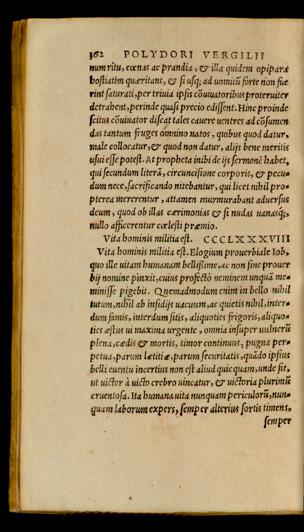 362 POLYDORI VERGILII
num ritu, cœnas ac prandia, & illa quidem opiparè
hostiatim quæritant, & si usq; ad uomitũ forte non fue
rint saturati, per triuia ipsis cõuiuatoribus proteruiter
detrahent, perinde quasi precio edissent. Hinc proinde
scitus cõuiuator discat tales cauere uentres ad cõsumen
das tantum fruges omnino natos, quibus quod datur,
male collocatur, & quod non datur, alijs bene meritis
usui esse potest. At propheta inibi de ijs sermonẽ habet,
qui secundum literã, circuncisione corporis, & pecu
dum nece, sacrificando nitebantur, qui licet nihil pro
pterea mererentur, attamen murmurabant aduersus
deum, quod ob illas cærimonias & si nudas uanasq;,
nullo afficerentur cœlesti præmio.
Vita hominis militia est. CCCLXXXVIII
Vita hominis militia est. Elogium prouerbiale Iob,
quo ille uitam humanam bellissime, ac non sine prouer
bij nomine pinxit, cuius profectò neminem unquã me
minisse pigebit. Quemadmodum enim in bello nihil
tutum, nihil ab insidijs uacuum, ac quietis nihil, inter-
dum famis, interdum sitis, aliquoties frigoris, aliquo-
ties æstus ui maxima urgente, omnia insuper uulnerũ
plena, cædis & mortis, timor continuus, pugna per-
petua, parum lætitiæ, parum securitatis, quãdo ipsius
belli euentu incertius non est aliud quicquam, unde fit,
ut uictor à uicto crebro uincatur, & uictoria plurimũ
cruentosa. Ita humana uita nunquam periculorũ, nun-
quam laborum expers, semper alterius sortis timens,
semper